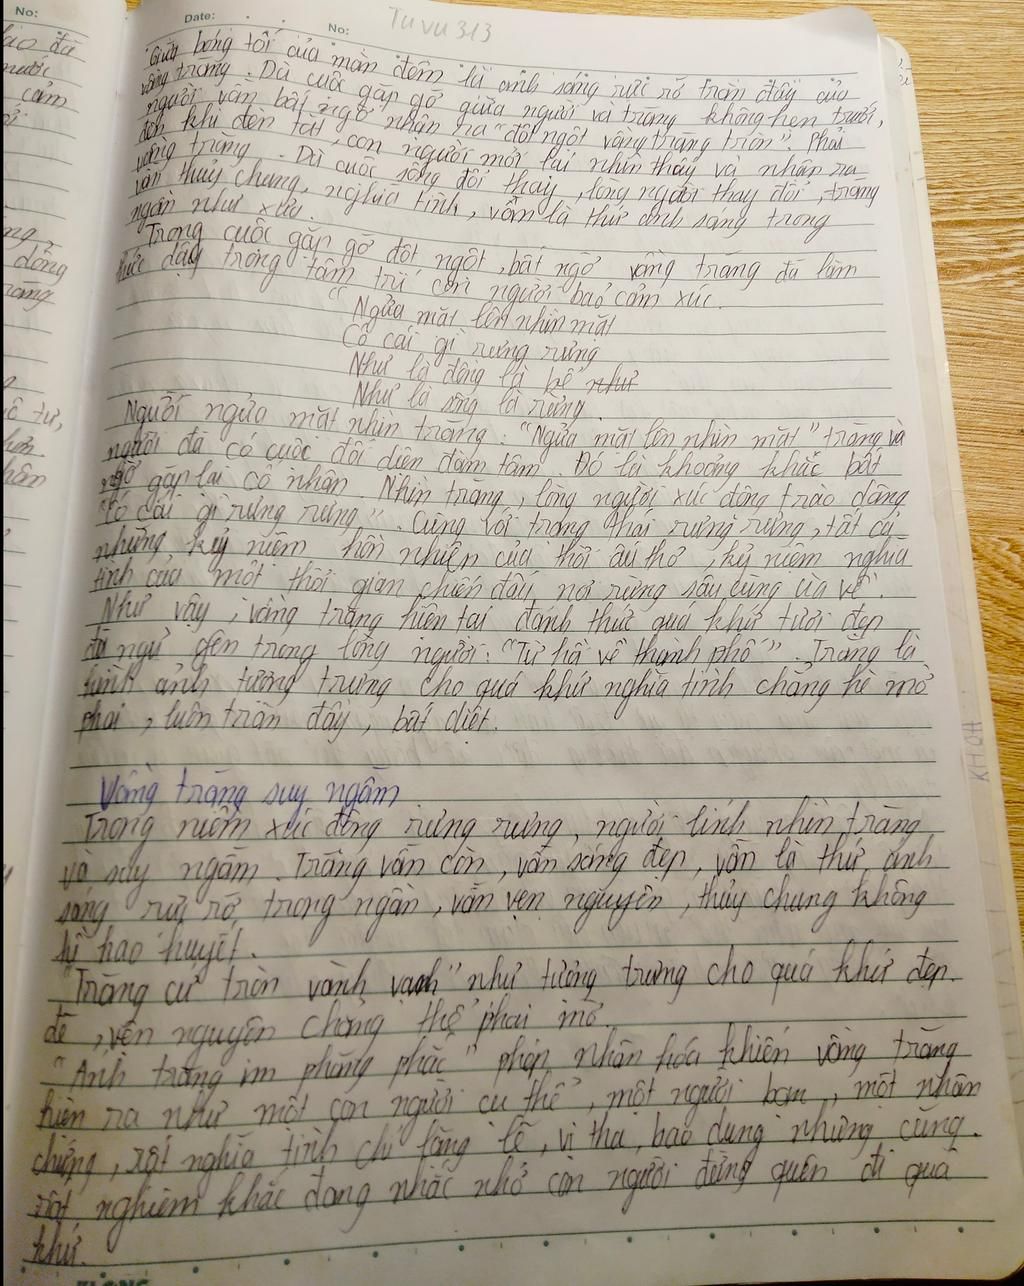 No:
Date:
No:
Tu vu 313
Giữa bóng tối của màn đêm là ánh sáng rực rỡ tràn đầy của
vầng trăng. Dù cuộc gặp gỡ giữa người và trăng không hẹn trước,
người vẫn bất ngờ nhận ra "đột ngột vầng trăng tròn". Phải
đến khi đèn tắt, con người mới lại nhìn thấy và nhận ra
vầng trăng. Dù cuộc sống đổi thay, lòng người thay đổi, trăng
vẫn thủy chung, nghĩa tình, vẫn là thứ ánh sáng trong
ngần như xưa.
Trong cuộc gặp gỡ đột ngột, bất ngờ vầng trăng đã làm
thức dậy trong tâm trí con người bao cảm xúc.
"Ngửa mặt lên nhìn mặt
Có cái gì rưng rưng
Như là đồng là bể như
Như là sông là rừng.
Người ngửa mặt nhìn trăng: "Ngửa mặt lên nhìn mặt" trăng và
người đã có cuộc đối diện đàm tâm. Đó là khoảng khắc bất
ngờ gặp lại cố nhân. Nhìn trăng, lòng người xúc động trào dâng
"Có cái gì rưng rưng". Cùng với trạng thái rưng rưng, tất cả
những kỷ niệm hồn nhiên của thời ấu thơ, kỷ niệm nghĩa
tình của một thời gian chiến đấu nơi rừng sâu cùng ùa về.
Như vậy, vầng trăng hiện tại đánh thức quá khứ tươi đẹp
đã ngủ yên trong lòng người: "Từ hồi về thành phố". Trăng là
hình ảnh tượng trưng cho quá khứ nghĩa tình chẳng hề mờ
phai, luôn tràn đầy, bất diệt.
Vầng trăng suy ngẫm
Trong niềm xúc động rưng rưng, người lính nhìn trăng
và suy ngẫm. Trăng vẫn còn, vẫn sáng đẹp, vẫn là thứ ánh
sáng rực rỡ, trong ngần, vẫn vẹn nguyên, thủy chung không
hề hao khuyết.
"Trăng cứ tròn vành vạnh" như tượng trưng cho quá khứ đẹp
đẽ, vẹn nguyên chẳng thể phai mờ.
"Ánh trăng im phăng phắc" phép nhân hóa khiến vầng trăng
hiện ra như một con người cụ thể, một người bạn, một nhân
chứng, rất nghĩa tình chỉ lặng lẽ, vị tha, bao dung nhưng cũng
rất nghiêm khắc đang nhắc nhở con người đừng quên đi quá
khứ.